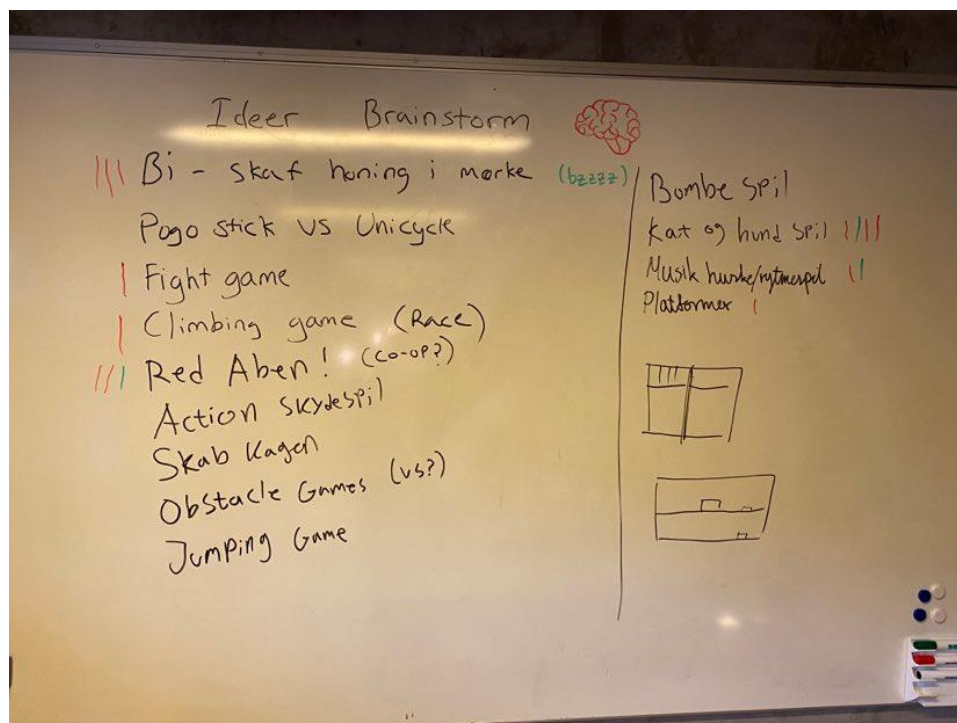 Ideer Brainstorm
Bi - skaf honing i mørke (bzzzz)
Pogo stick vs Unicycle
Fight game
Climbing game (Race)
Red Aben! (co-op?)
Action skydespil
Skab Kagen
Obstacle Games (vs?)
Jumping Game
Bombe spil
Kat og hund spil
Musik huske/rytmespil
Platformer